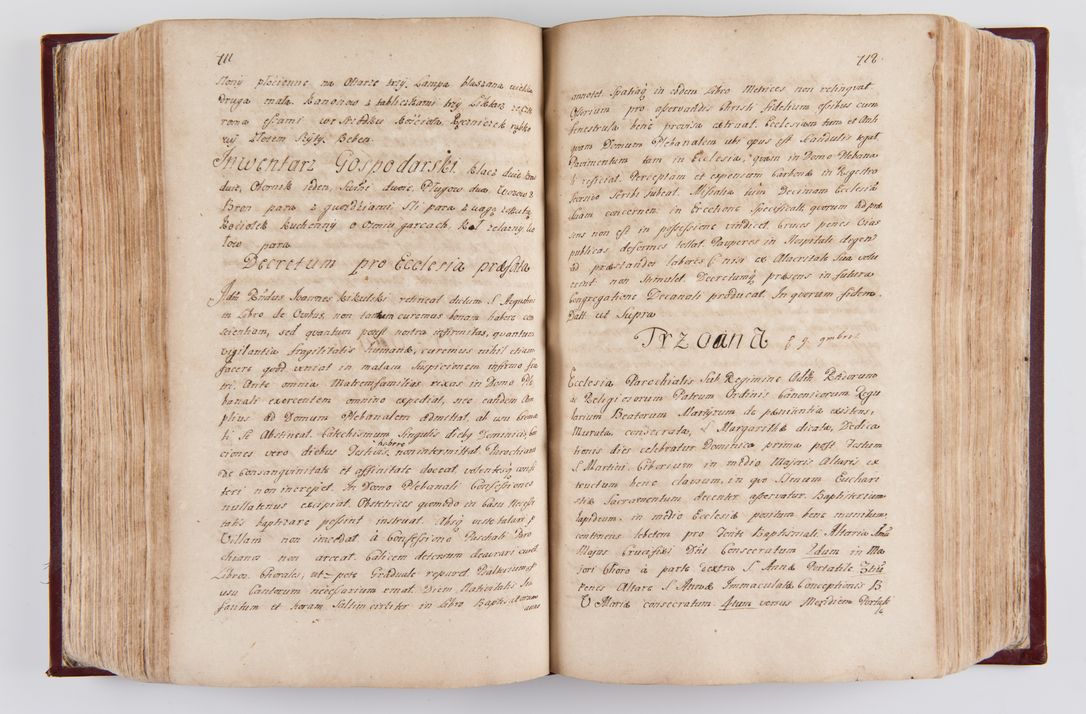 711
płócienne na Ołtarze trzy. Lampa blaszana wielka
druga mała. Kanonow z tabliczkami trzy
we Srzodku Kościoła,
złotem Beben
Inwentarz Gospodarski. Klacz dwie,
dwie, Obornik ieden, dwie, Pługow dwa,
Bron para z gwozdziami para z wagą
Kociołek Kuchenny o garcach, żelazny,
para
Decretum pro Ecclesia præfata
Rndus Joannes Kikulski retineat dictum S.
in Libro de Civibus, non tantum curemus bonam habere con
scientiam, sed quantum potest nostra infirmitas, quantum
vigilantia fragilitatis humanæ, curemus nihil etiam
facere quod veniat in malam Suspicionem infirmo fra
tri. Ante omnia Matremfamilias rixas in Domo Ple
banali exercentem omnino expediat, nec eandem Am
plius ad Domum Plebanalem admittat, ab usu
Abstineat. Catechismum Singulis diebus Dominicis, Con
ciones vero diebus Festivis habere non intermittat. Parochianos
de Consanguinitate et affinitate doceat, volentesq confi
teri non increpet. In Domo Plebanali Confessiones
nullatenus excipiat. Obstetrices quomodo in Casu Necessi
tatis baptizare possint instruat. Absq
Villam non incedat à Confessione Paschali Paro
chianos non arceat. Calicem detersum deaurari curet
Libros Chorales, ut pote Graduale reparet. Psalterium
usu Cantorum necessarium emat. Diem Nativitatis In
fantum et horam Saltim circiter in Libro Baptisatorum
712.
annotet. Spatiaq in eodem Libro Metrices non relinquat.
Ossorium pro asservandis Christi fidelium ossibus cum
fenestrula bene provisa extruat. Ecclesiam tam et Anti
quam Domum Plebanalem ubi opus est Scandulis tegat
Pavimentum tam in Ecclesia, quam in Domo Plebana
li reficiat. Perceptam et expensam Carbonæ in Regestro
scribi faciat. Missalia tum Decimam Ecclesiæ
Suam concernen. in Erectione Specificatt, quorum ad præ
sens non est in possessione vindicet. Cruces penes Vias
publicas deformes tollat. Pauperes in Hospitali degen
ad præstandos labores (nisi ex Alacritate Sua volu
erint) non Stimulet. Decretumq præsens in futura
Congregatione Decanali producat. In quorum fidem.
Datt ut Supra
Trzciana
Ecclesia Parochialis Sub Regimine Adm Rndorum
ac Religiosorum Patrum Ordinis Canonicorum Regu
larium Beatorum Martyrum de pænitentia existens,
Murata, consecrata, S. Margarithæ dicata, Dedica
tionis dies celebratur Dominica prima post Festum
S. Martini. Ciborium in medio Majoris Altaris ex
tructum bene clausum, in quo SSmum Euchari
stiæ Sacramentum decenter asservatur. Baptisterium
lapideum in medio Ecclesiæ positum bene munitum,
continens lebetem pro Fonte Baptismali. Altaria
Majus Crucifixi Dni Consecratum 2dum in Ma
jori Choro à parte dextra S. Annæ Portatile 3tiu
Penes Altare S. Annæ Immaculatæ Conceptionis B
V Mariæ consecratum. 4tum versus Meridiem Portati
le